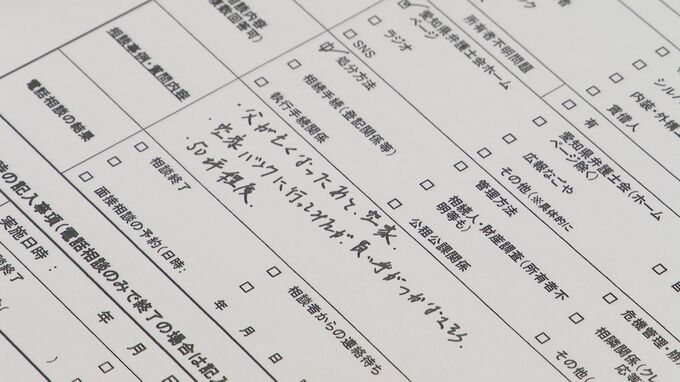 複数回答可）
相談内容
相談事例・質問内容
電話相談の結果
ラジオ
愛知県弁護士会ホーム
ページ
所有者不明問題
シル
SNS
処分方法
有
内装・外構
賃借人
相続手続（登記関係等）
執行手続関係
愛知県弁護士会（ホーム
ページ除く）
広報なごや
その他（※具体的に
管理方法
相続人・財産調査（所有者不
明等も）
公租公課関係
・父が亡くなったあと、空家。
・空家バンクに行ってみたが、買い手がつかなそう。
・50坪程度
相談終了
面接相談の予約（日時：
年　月　日
相談者からの連絡待ち
危機管理・
相隣関係（クレ
応等
その他（
の記入事項（電話相談のみで終了の場合は記入
実施日時：
年　月　日
終了